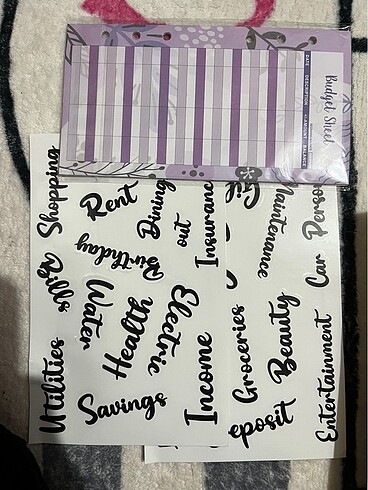 Budget Sheet
DATE DESCRIPTION +/- AMOUNT BALANCE
Shopping
Rent
Dining out
Insuranc
Maintenance
Perso
Car
Birthday
Gifts
Water
Health
Electric
Utilities
Savings
Income
Groceries
Beauty
eposit
Entertainment